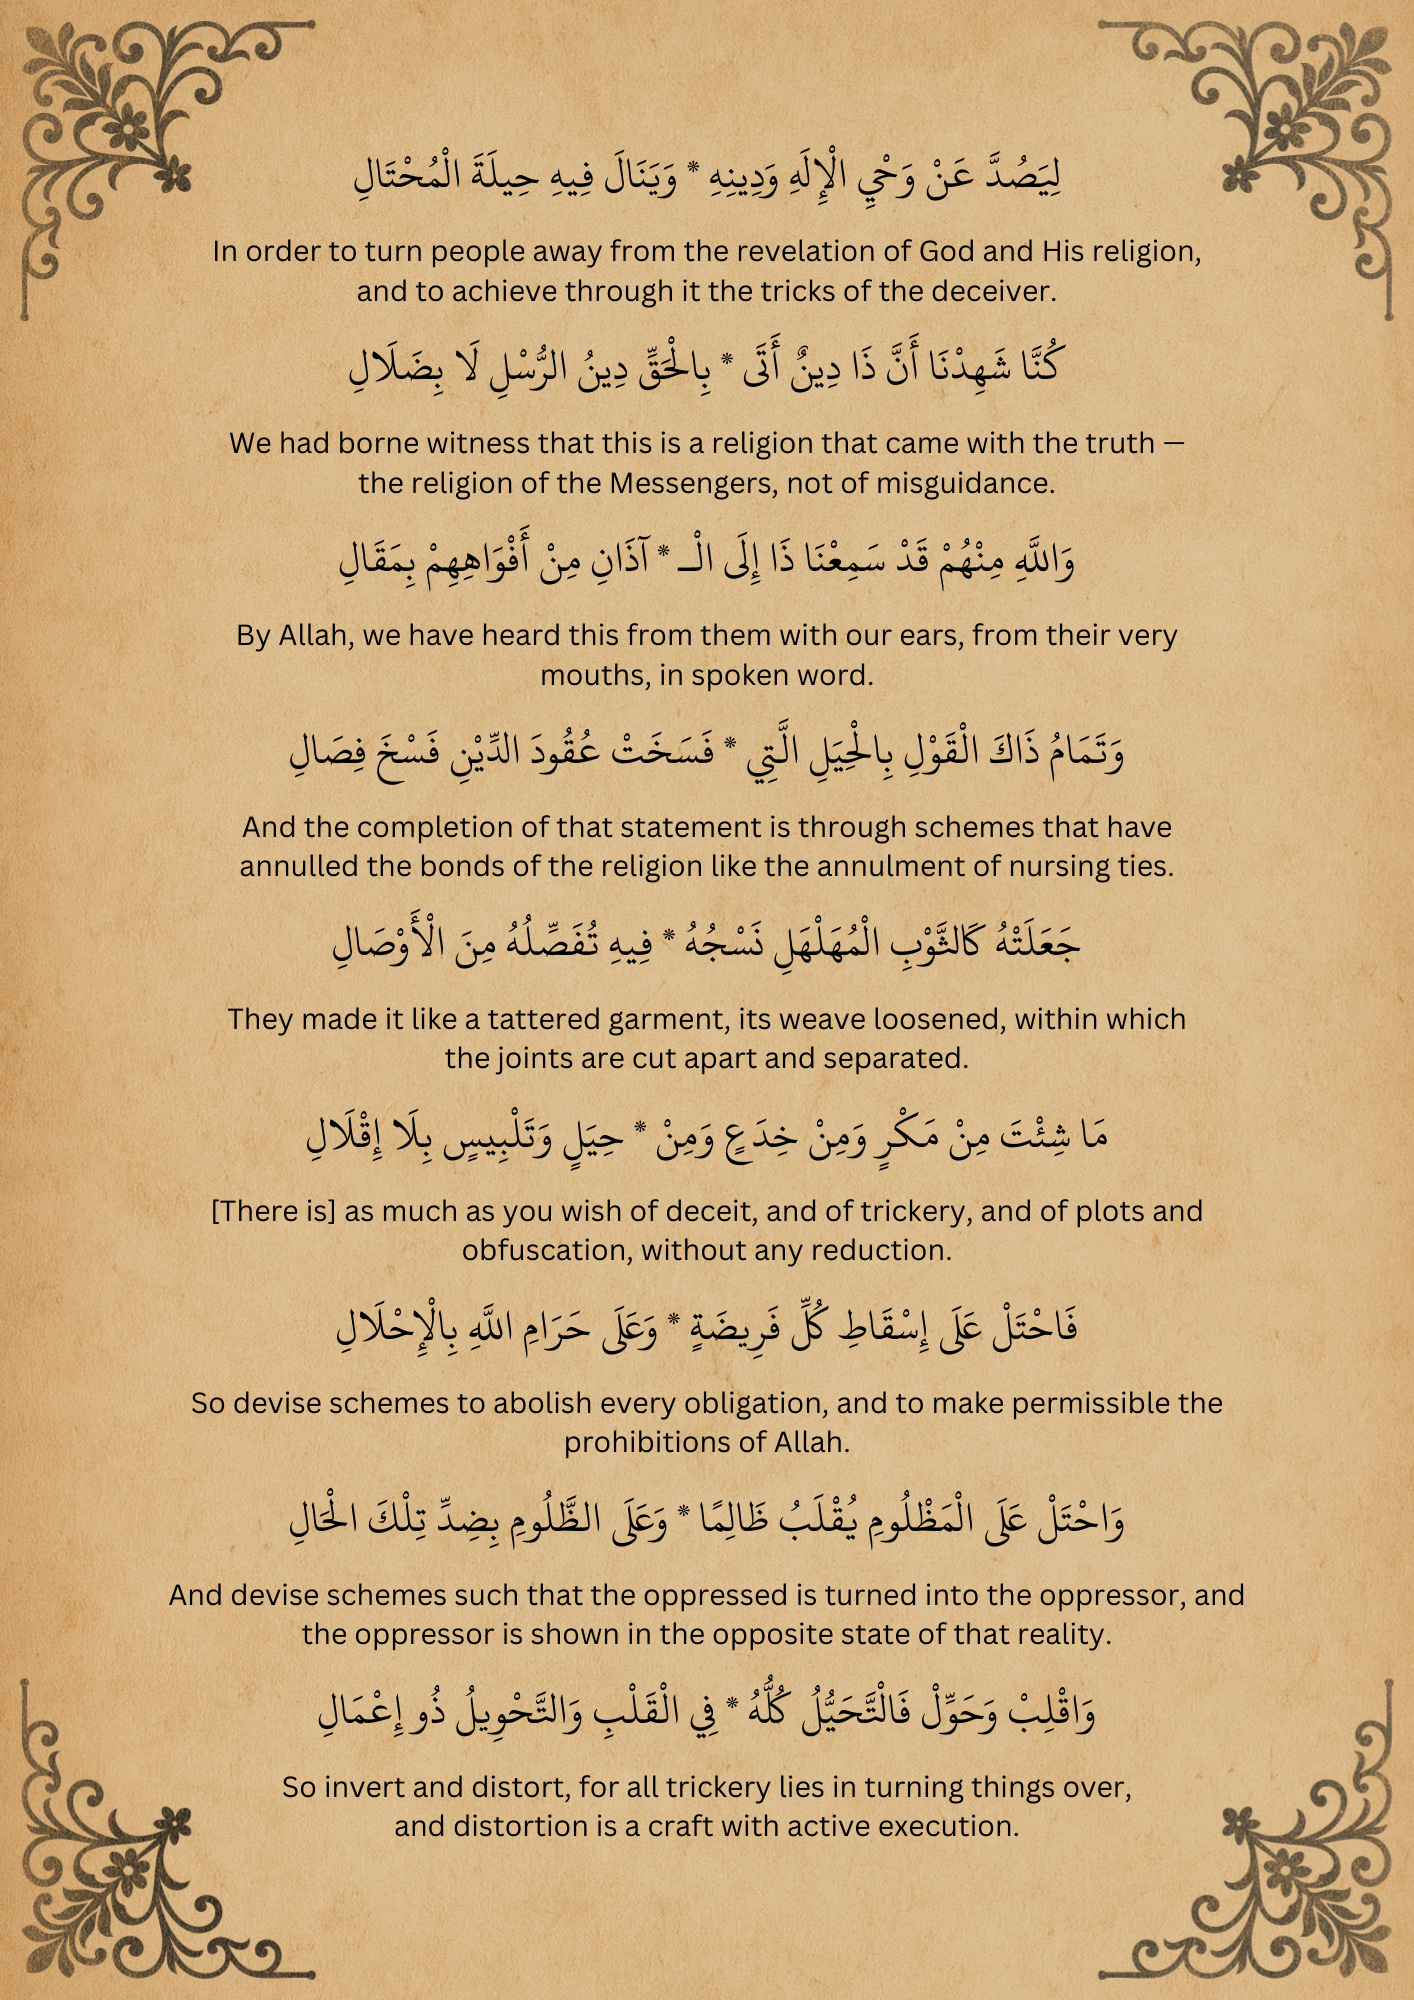 لِيَصُدَّ عَنْ وَحْيِ الْإِلَهِ وَدِينِهِ * وَيَنَالَ فِيهِ حِيلَةَ الْمُحْتَالِ
In order to turn people away from the revelation of God and His religion,
and to achieve through it the tricks of the deceiver.
كُنَّا شَهِدْنَا أَنَّ ذَا دِينٌ أَتَى * بِالْحَقِّ دِينُ الرُّسْلِ لَا بِضَلَالِ
We had borne witness that this is a religion that came with the truth —
the religion of the Messengers, not of misguidance.
وَاللَّهِ مِنْهُمْ قَدْ سَمِعْنَا ذَا إِلَى الْـ * آذَانِ مِنْ أَفْوَاهِهِمْ بِمَقَالِ
By Allah, we have heard this from them with our ears, from their very
mouths, in spoken word.
وَتَمَامُ ذَاكَ الْقَوْلِ بِالْحِيَلِ الَّتِي * فَسَخَتْ عُقُودَ الدِّيْنِ فَسْخَ فِصَالِ
And the completion of that statement is through schemes that have
annulled the bonds of the religion like the annulment of nursing ties.
جَعَلَتْهُ كَالثَّوْبِ الْمُهَلْهَلِ نَسْجُهُ * فِيهِ تُفَصِّلُهُ مِنَ الْأَوْصَالِ
They made it like a tattered garment, its weave loosened, within which
the joints are cut apart and separated.
مَا شِئْتَ مِنْ مَكْرٍ وَمِنْ خِدَعٍ وَمِنْ * حِيَلٍ وَتَلْبِيسٍ بِلَا إِقْلَالِ
[There is] as much as you wish of deceit, and of trickery, and of plots and
obfuscation, without any reduction.
فَاحْتَلْ عَلَى إِسْقَاطِ كُلِّ فَرِيضَةٍ * وَعَلَى حَرَامِ اللَّهِ بِالْإِحْلَالِ
So devise schemes to abolish every obligation, and to make permissible the
prohibitions of Allah.
وَاحْتَلْ عَلَى الْمَظْلُومِ يُقْلَبُ ظَالِمًا * وَعَلَى الظَّلُومِ بِضِدِّ تِلْكَ الْحَالِ
And devise schemes such that the oppressed is turned into the oppressor, and
the oppressor is shown in the opposite state of that reality.
وَاقْلِبْ وَحَوِّلْ فَالْتَّحَيُّلُ كُلُّهُ * فِي الْقَلْبِ وَالتَّحْوِيلُ ذُو إِعْمَالِ
So invert and distort, for all trickery lies in turning things over,
and distortion is a craft with active execution.